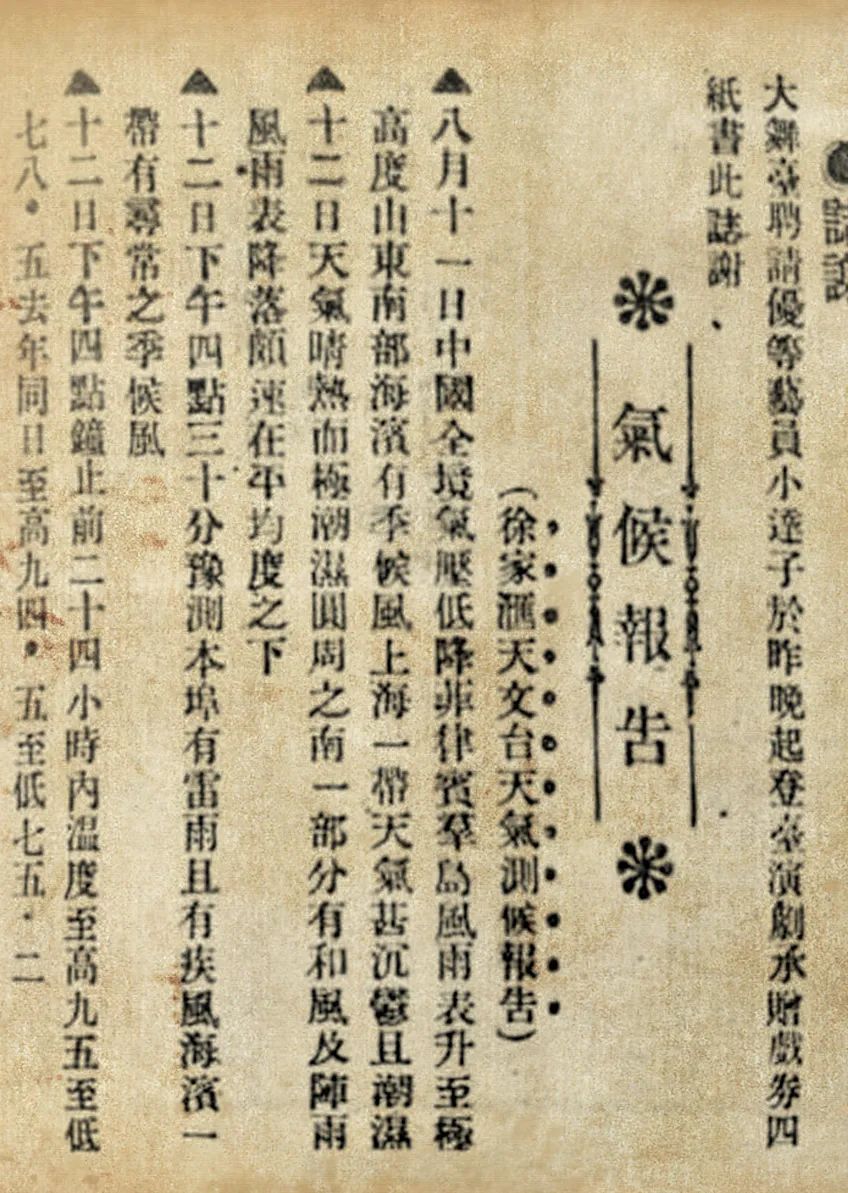 誌謝
大舞臺聘請優等藝員小達子於昨晚起登臺演劇承贈戲券四
紙書此誌謝
氣候報告
(徐家滙天文台天氣測候報告)
▲八月十一日中國全境氣壓低降菲律賓羣島風雨表升至極
高度山東南部海濱有季候風上海一帶天氣甚沉鬱且潮濕
▲十二日天氣晴熱而極潮濕圓周之南一部分有和風及陣雨
風雨表降落頗速在平均度之下
▲十二日下午四點三十分豫測本埠有雷雨且有疾風海濱一
帶有尋常之季候風
▲十二日下午四點鐘止前二十四小時內溫度至高九五至低
七八・五去年同日至高九四・五至低七五・二